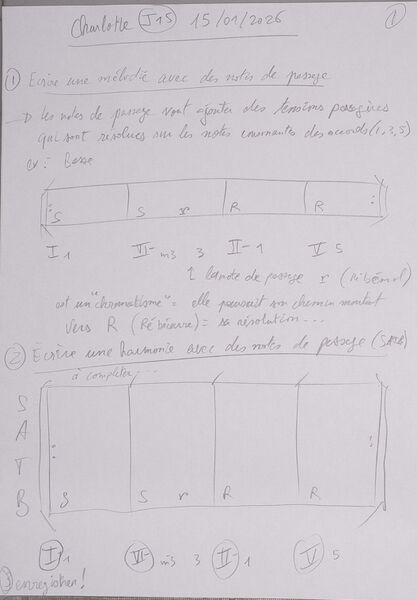 Charlotte J15 15/01/2026 1
1 Ecrire une mélodie avec des notes de passage
→ les notes de passage vont ajouter des tensions passagères
qui sont résolues sur les notes consonantes des accords (1, 3, 5)
ex : Basse
S S r R R
I 1 VI- m3 3 II- 1 V 5
↑ la note de passage r (Ré bémol)
est un "chromatisme" = elle poursuit son chemin montant
vers R (Ré bécarre) = sa résolution...
2 Ecrire une harmonie avec des notes de passage (SATB)
à completer...
S
A
T
B S S r R R
I 1 VI- m3 3 II- 1 V 5
3 enregistrer !